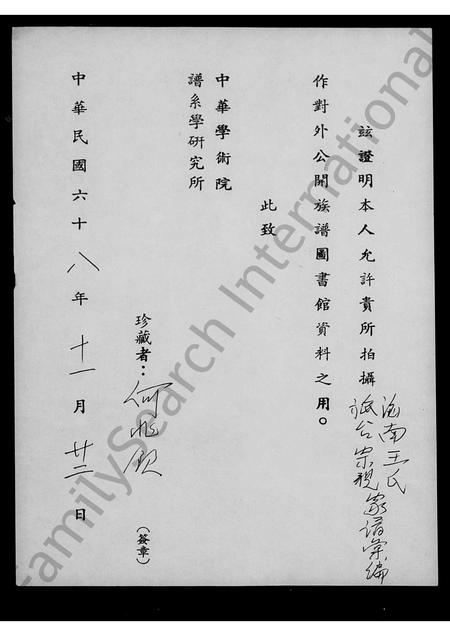 茲證明本人允許貴所拍攝
海南王氏
旅台宗親家譜彙編
作對外公開族譜圖書館資料之用。
此致
中華學術院
譜系學研究所
珍藏者：何兆欽
（簽章）
中華民國六十八年十一月廿二日
FamilySearch International